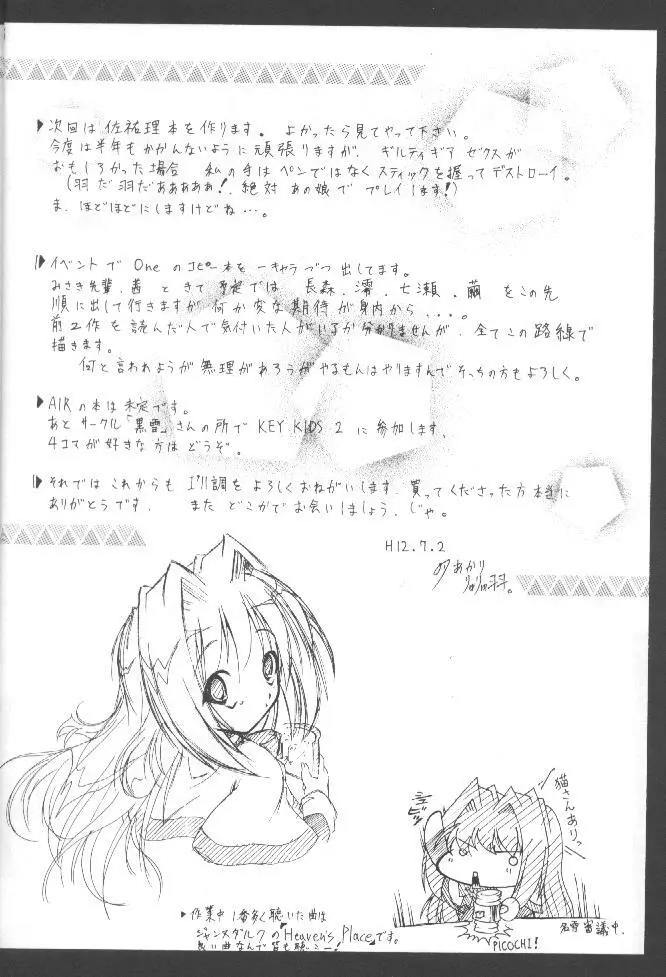 次回は佐祐理本を作ります。よかったら見てやって下さい。
今度は半年もかかんないように頑張りますが、ギルティギア ゼクスが
おもしろかった場合 私の手はペンではなくスティックを握ってデストローイ。
(羽だ羽だあああああ!絶対あの娘でプレイします!)
ま、ほどほどにしますけどね…。
イベントで Oneのコピー本を一キャラづつ出してます。
みさき先輩、茜ときて予定では、長森、澪、七瀬、繭をこの先
順に出して行きますが何か変な期待が身内から...。
前2作を読んだ人で気付いた人がいるか分かりませんが、全てこの路線で
描きます。
何と言われようが無理があろうがやるもんはやりますんでそっちの方もよろしく。
AIRの本は未定です。
あとサークル「黒雪」さんの所で KEY KIDS 2 に参加します。
4コマが好きな方はどうぞ。
それでは これからも I'll調をよろしくおねがいします。買ってくださった方本当に
ありがとうです。 また どこかでお会いしましょう。じゃ。
H12.7.2
猫さんありっ
PICOCHI!
名雪審議中.
作業中1番多く聴いた曲は
ジャンヌダルクの「Heaven's Place」です。
良い曲なんで皆も聴こー!